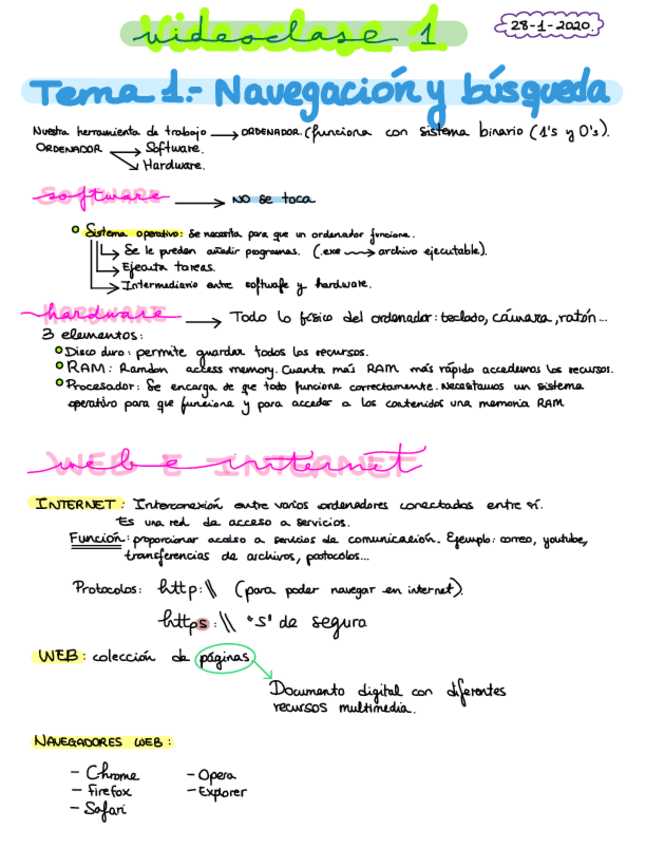 videoclase 1
28-1-2020.
Tema 1.- Navegación y búsqueda
Nuestra herramienta de trabajo → ORDENADOR. (funciona con sistema binario (1's y 0's).
ORDENADOR → Software.
Hardware.
SOFTWARE → NO se toca
Sistema operativo: Se necesita para que un ordenador funcione.
Se le pueden añadir programas. (.exe → archivo ejecutable).
Ejecuta tareas.
Intermediario entre software y hardware.
HARDWARE → Todo lo físico del ordenador: teclado, cámara, ratón...
3 elementos:
Disco duro: permite guardar todos los recursos.
RAM: Ramdon access memory. Cuanta más RAM más rápido accedemos los recursos.
Procesador: Se encarga de que todo funcione correctamente. Necesitamos un sistema
operativo para que funcione y para acceder a los contenidos una memoria RAM
WEB E INTERNET
INTERNET: Interconexión entre varios ordenadores conectados entre sí.
Es una red de acceso a servicios.
Función: proporcionar acceso a servicios de comunicación. Ejemplo: correo, youtube,
transferencias de archivos, protocolos...
Protocolos: http:\\ (para poder navegar en internet).
https:\\ "S" de segura
WEB: colección de páginas
Documento digital con diferentes
recursos multimedia.
NAVEGADORES WEB:
- Chrome - Opera
- Firefox - Explorer
- Safari